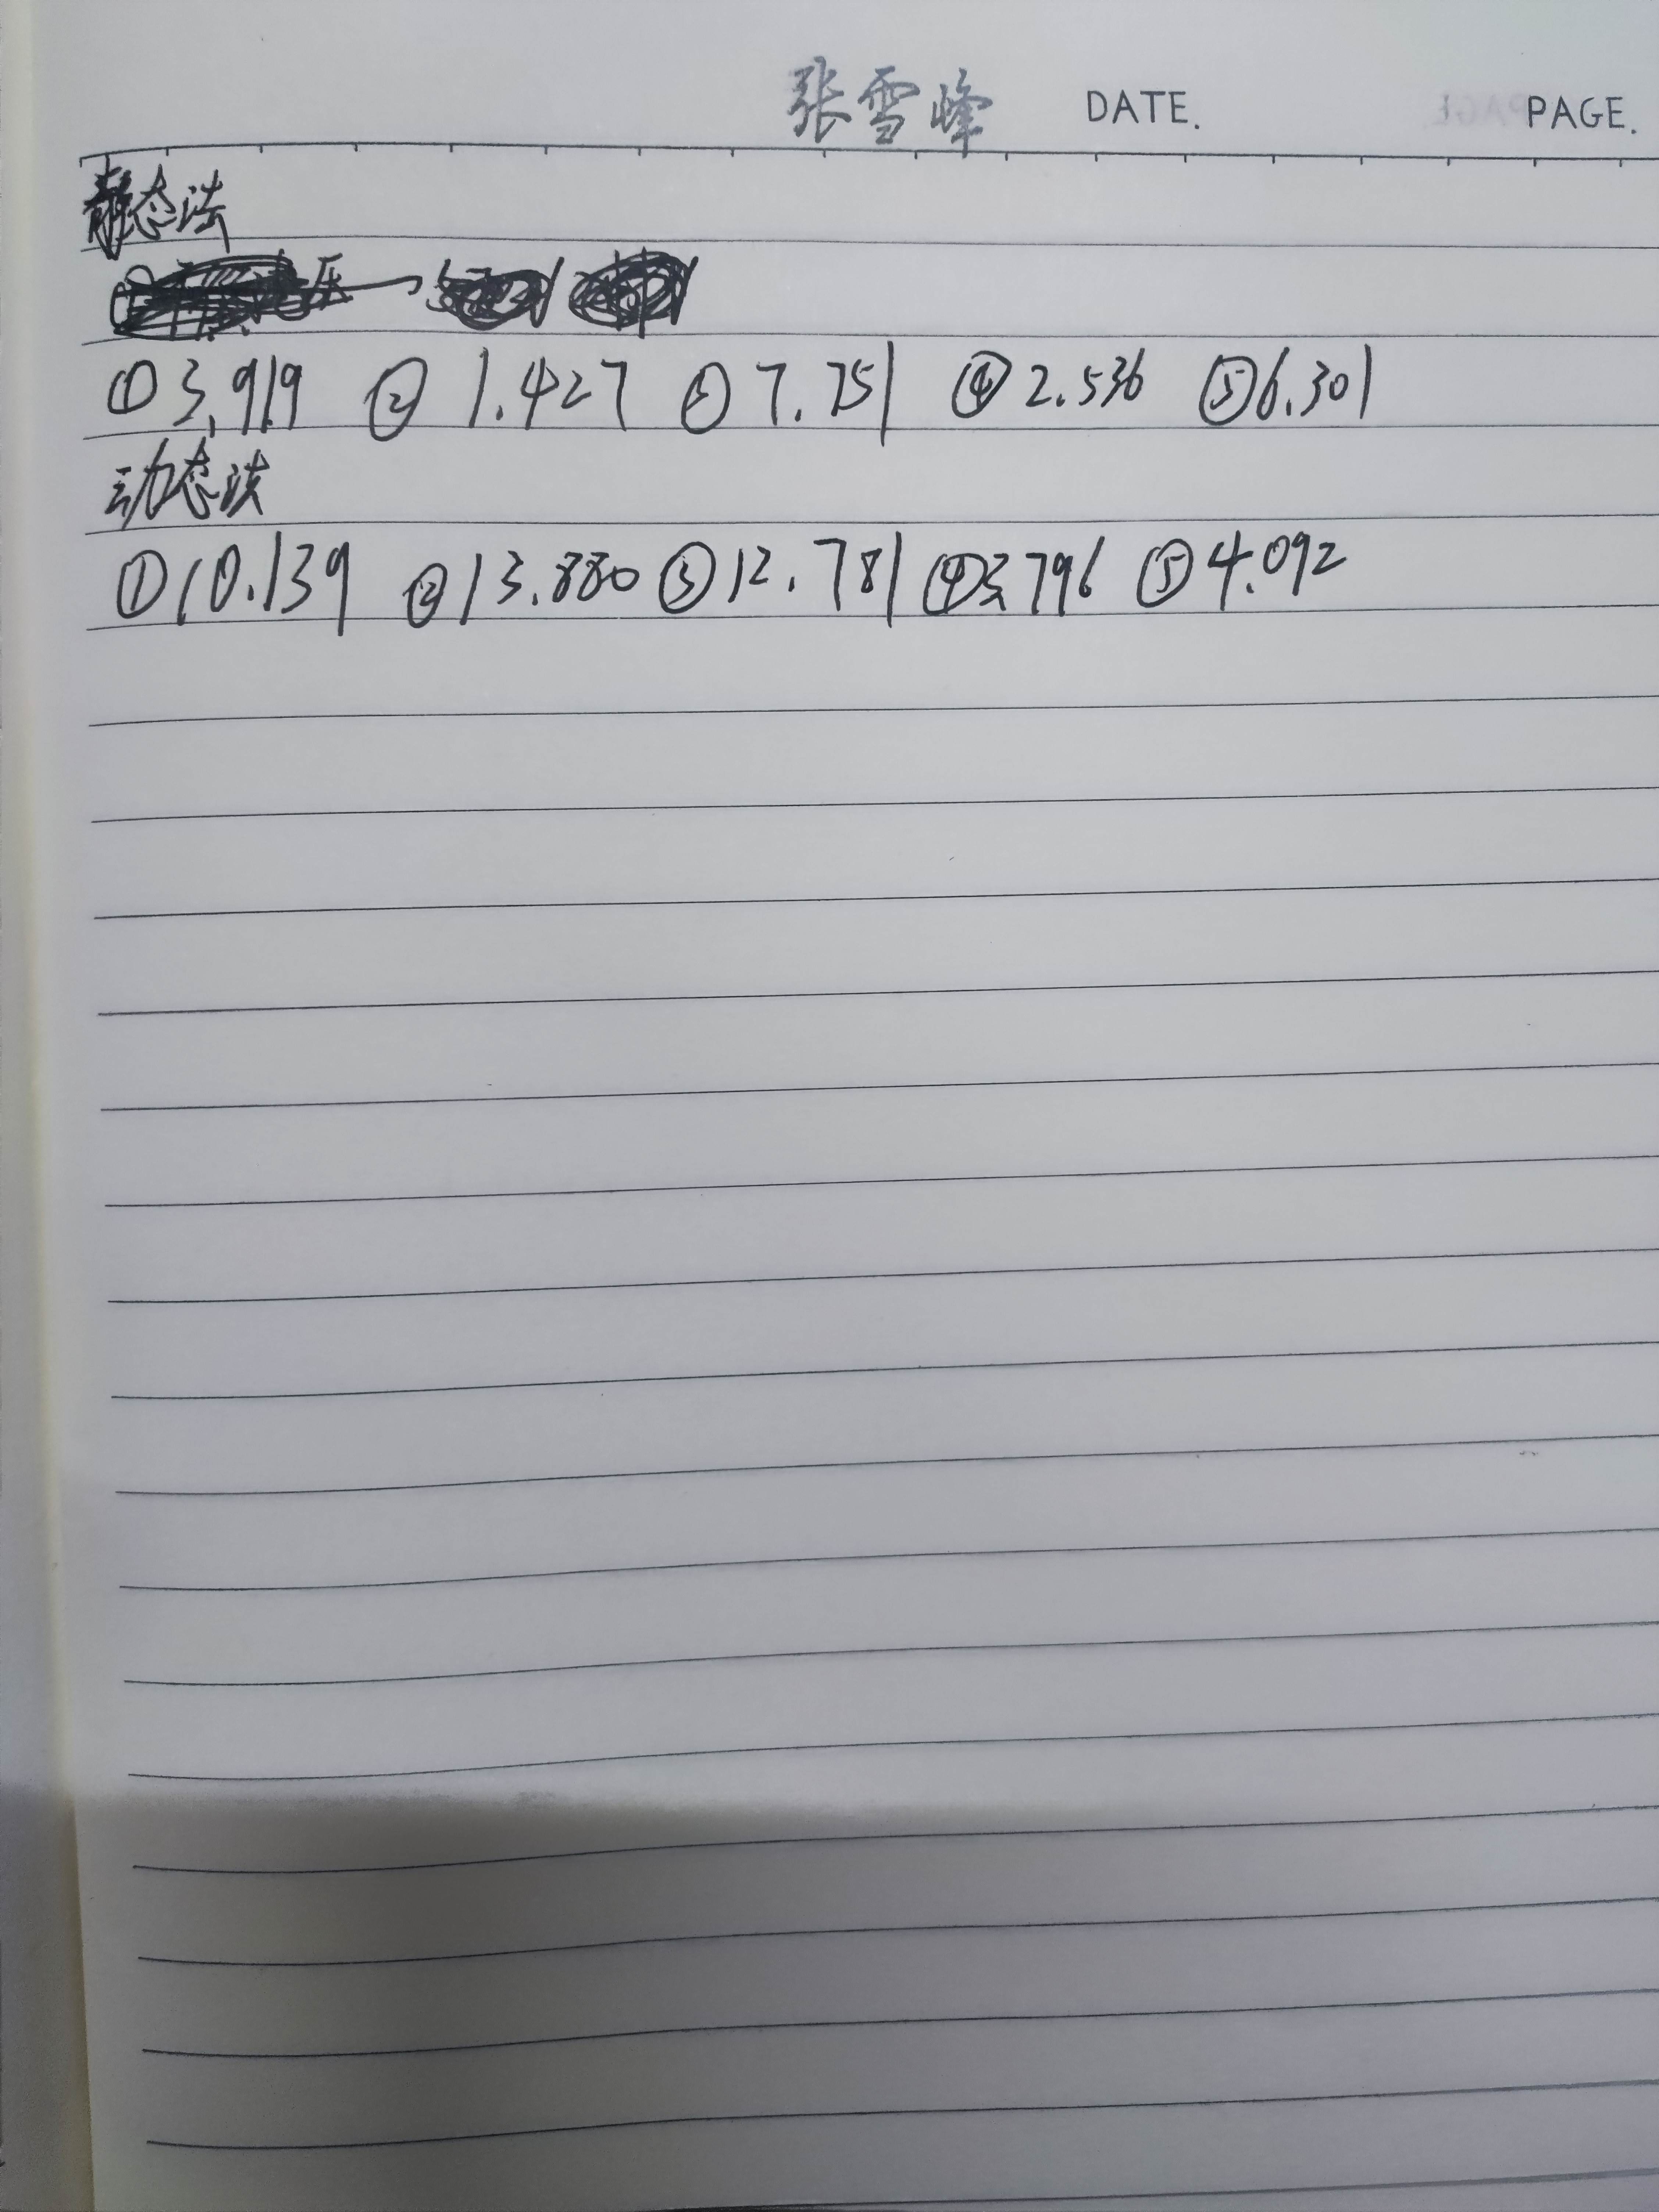 张雪峰 DATE. PAGE.
静态法
①3.919 ② 1.427 ③7.751 ④2.536 ⑤6.301
动态法
①10.139 ②13.880 ③12.781 ④3.796 ⑤4.092